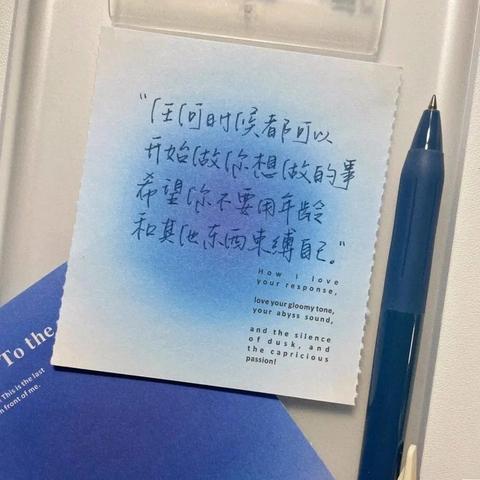 “任何时候都可以
开始做你想做的事
希望你不要用年龄
和其他东西束缚自己。”
How I love
your response,
love your gloomy tone,
your abyss sound,
and the silence
of dusk, and
the capricious
passion!
To the
This is the last
front of me.